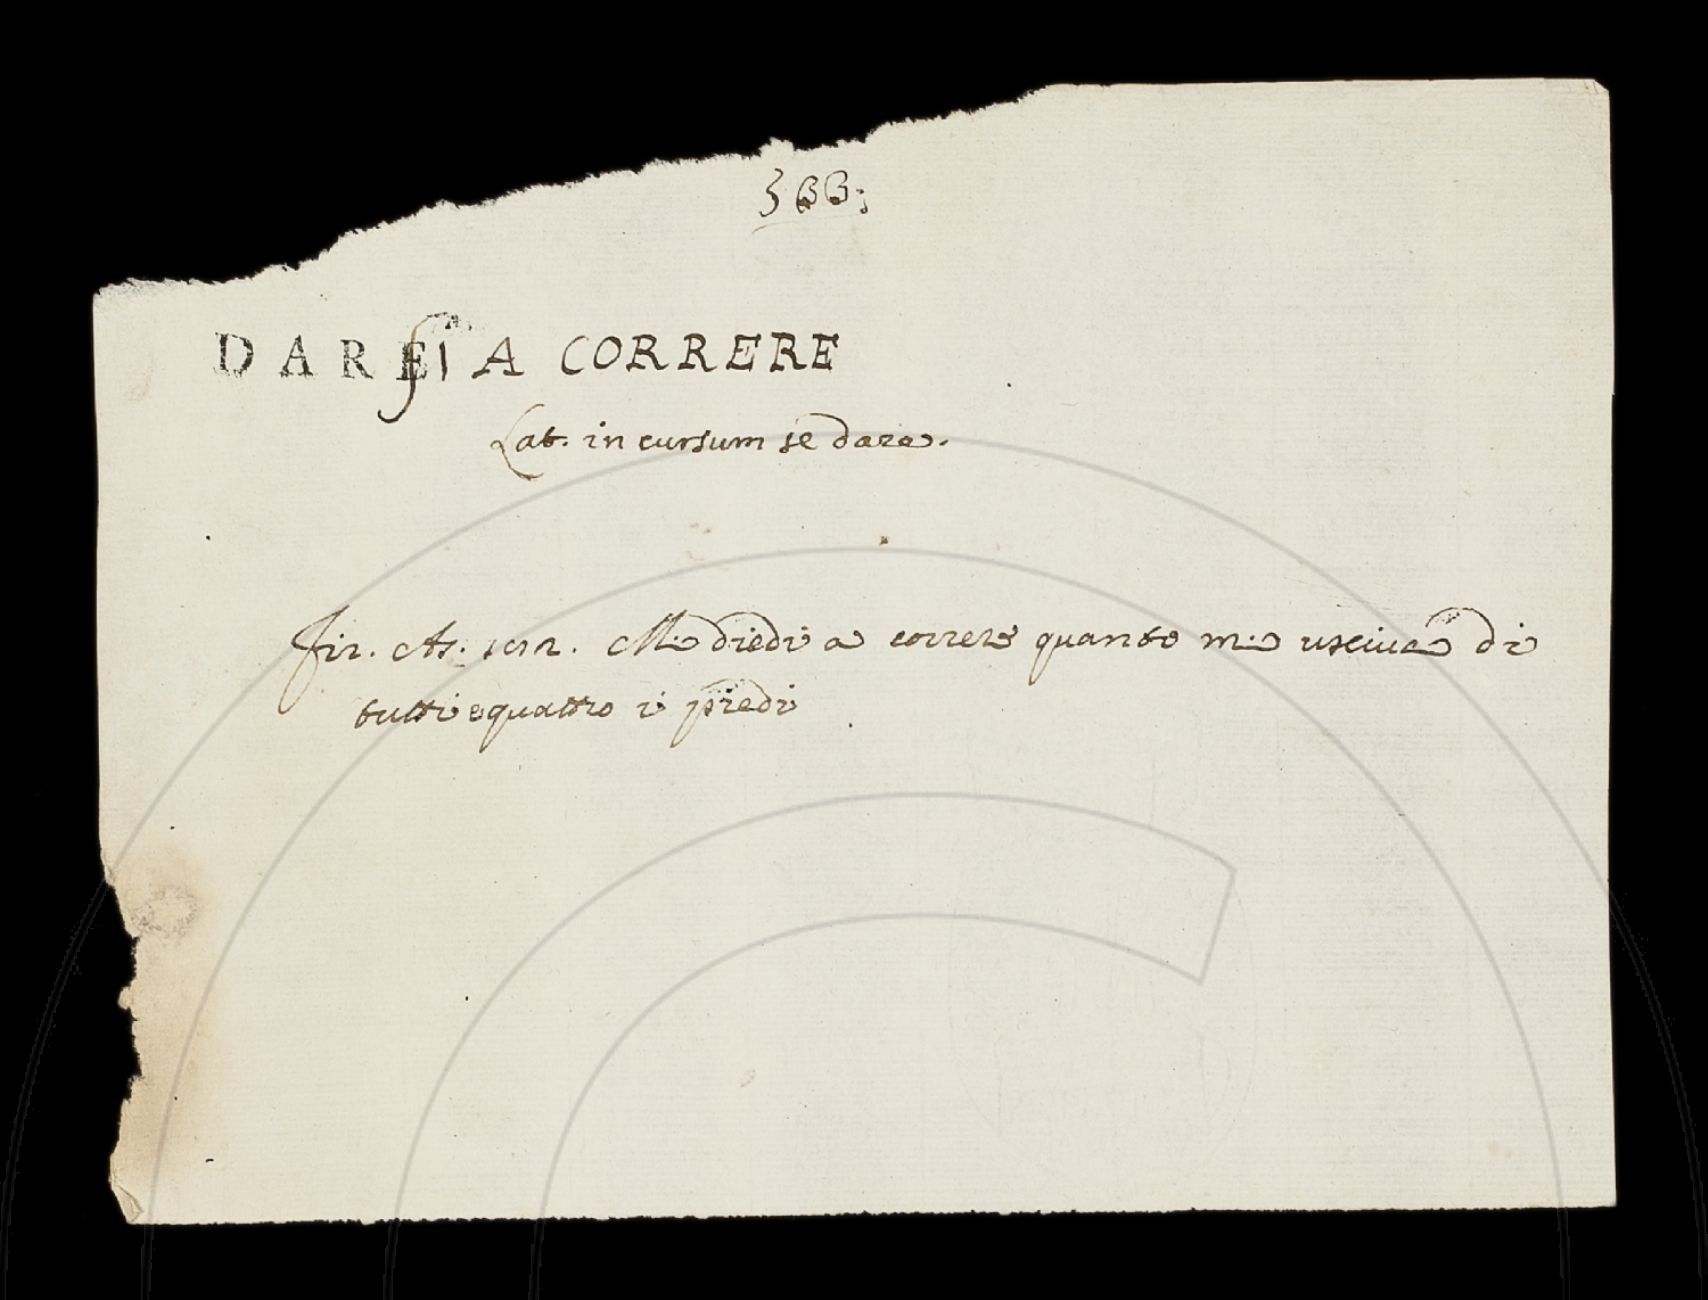 366;
DARSI A CORRERE
Lat. in cursum se dare.
Fir. As. 102. Mi diedi a correre quanto mi usciva di
tutti e quattro i piedi